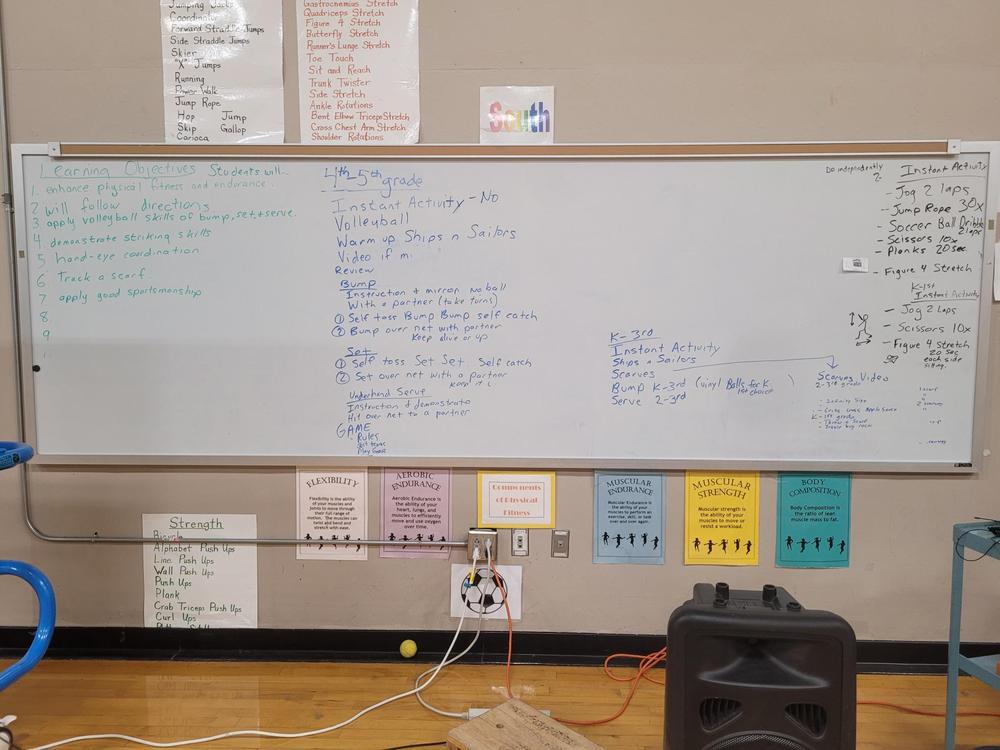 Jumping Jacks
Coordinator
Forward Straddle Jumps
Side Straddle Jumps
Skier
"X" Jumps
Running
Power Walk
Jump Rope
Hop Jump
Skip Gallop
Carioca
Gastrocnemius Stretch
Quadriceps Stretch
Figure 4 Stretch
Butterfly Stretch
Runner's Lunge Stretch
Toe Touch
Sit and Reach
Trunk Twister
Side Stretch
Ankle Rotations
Bent Elbow Tricep Stretch
Cross Chest Arm Stretch
Shoulder Rotations
South
Learning Objectives Students will...
1. enhance physical fitness and endurance.
2 will follow directions
3 apply volleyball skills of bump, set, + serve.
4 demonstrate striking skills
5 hand-eye coordination
6 Track a scarf
7 apply good sportsmanship
8.
9
4th-5th grade
Instant Activity - No
Volleyball
Warm up Ships n Sailors
Video if
Review
Bump
Instruction + mirror No ball
With a partner (take turns)
① Self toss Bump Bump self catch
② Bump over net with partner
Keep alive or up
Set
① Self toss Set Set Self catch
② Set over net with a partner
Keep it
Underhand Serve
Instruction + demonstrate
Hit over net to a partner
GAME
Rules
Play Game
K-3rd
Instant Activity
Ships n Sailors
Scarves
Bump K-3rd (vinyl Balls for K )
1st choice
Serve 2-3rd
Scarves Video
2-3rd grade
K-1st grade
Do independently
Instant Activity
- Jog 2 laps
- Jump Rope 30x
- Soccer Ball Dribble
2 laps
- Scissors 10x
- Planks 20 sec
- Figure 4 Stretch
K-1st
Instant Activity
- Jog 2 Laps
- Scissors 10x
- Figure 4 Stretch
20 Sec
each side
sitting.
FLEXIBILITY
Flexibility is the ability
of your muscles and
joints to move through
their full range of
motion. The muscles can
twist and bend and
stretch with ease.
AEROBIC
ENDURANCE
Aerobic Endurance is
the ability of your
heart, lungs, and
muscles to efficiently
move and use oxygen
over time.
Components
of Physical
Fitness
MUSCULAR
ENDURANCE
Muscular Endurance is
the ability of your
muscles to perform an
exercise, skill, or task
over and over again.
MUSCULAR
STRENGTH
Muscular strength is
the ability of your
muscles to move or
resist a workload.
BODY
COMPOSITION
Body Composition is
the ratio of lean
muscle mass to fat.
Strength
Bicycle
Alphabet Push Ups
Line Push Ups
Wall Push Ups
Push Ups
Plank
Crab Triceps Push Ups
Curl Ups